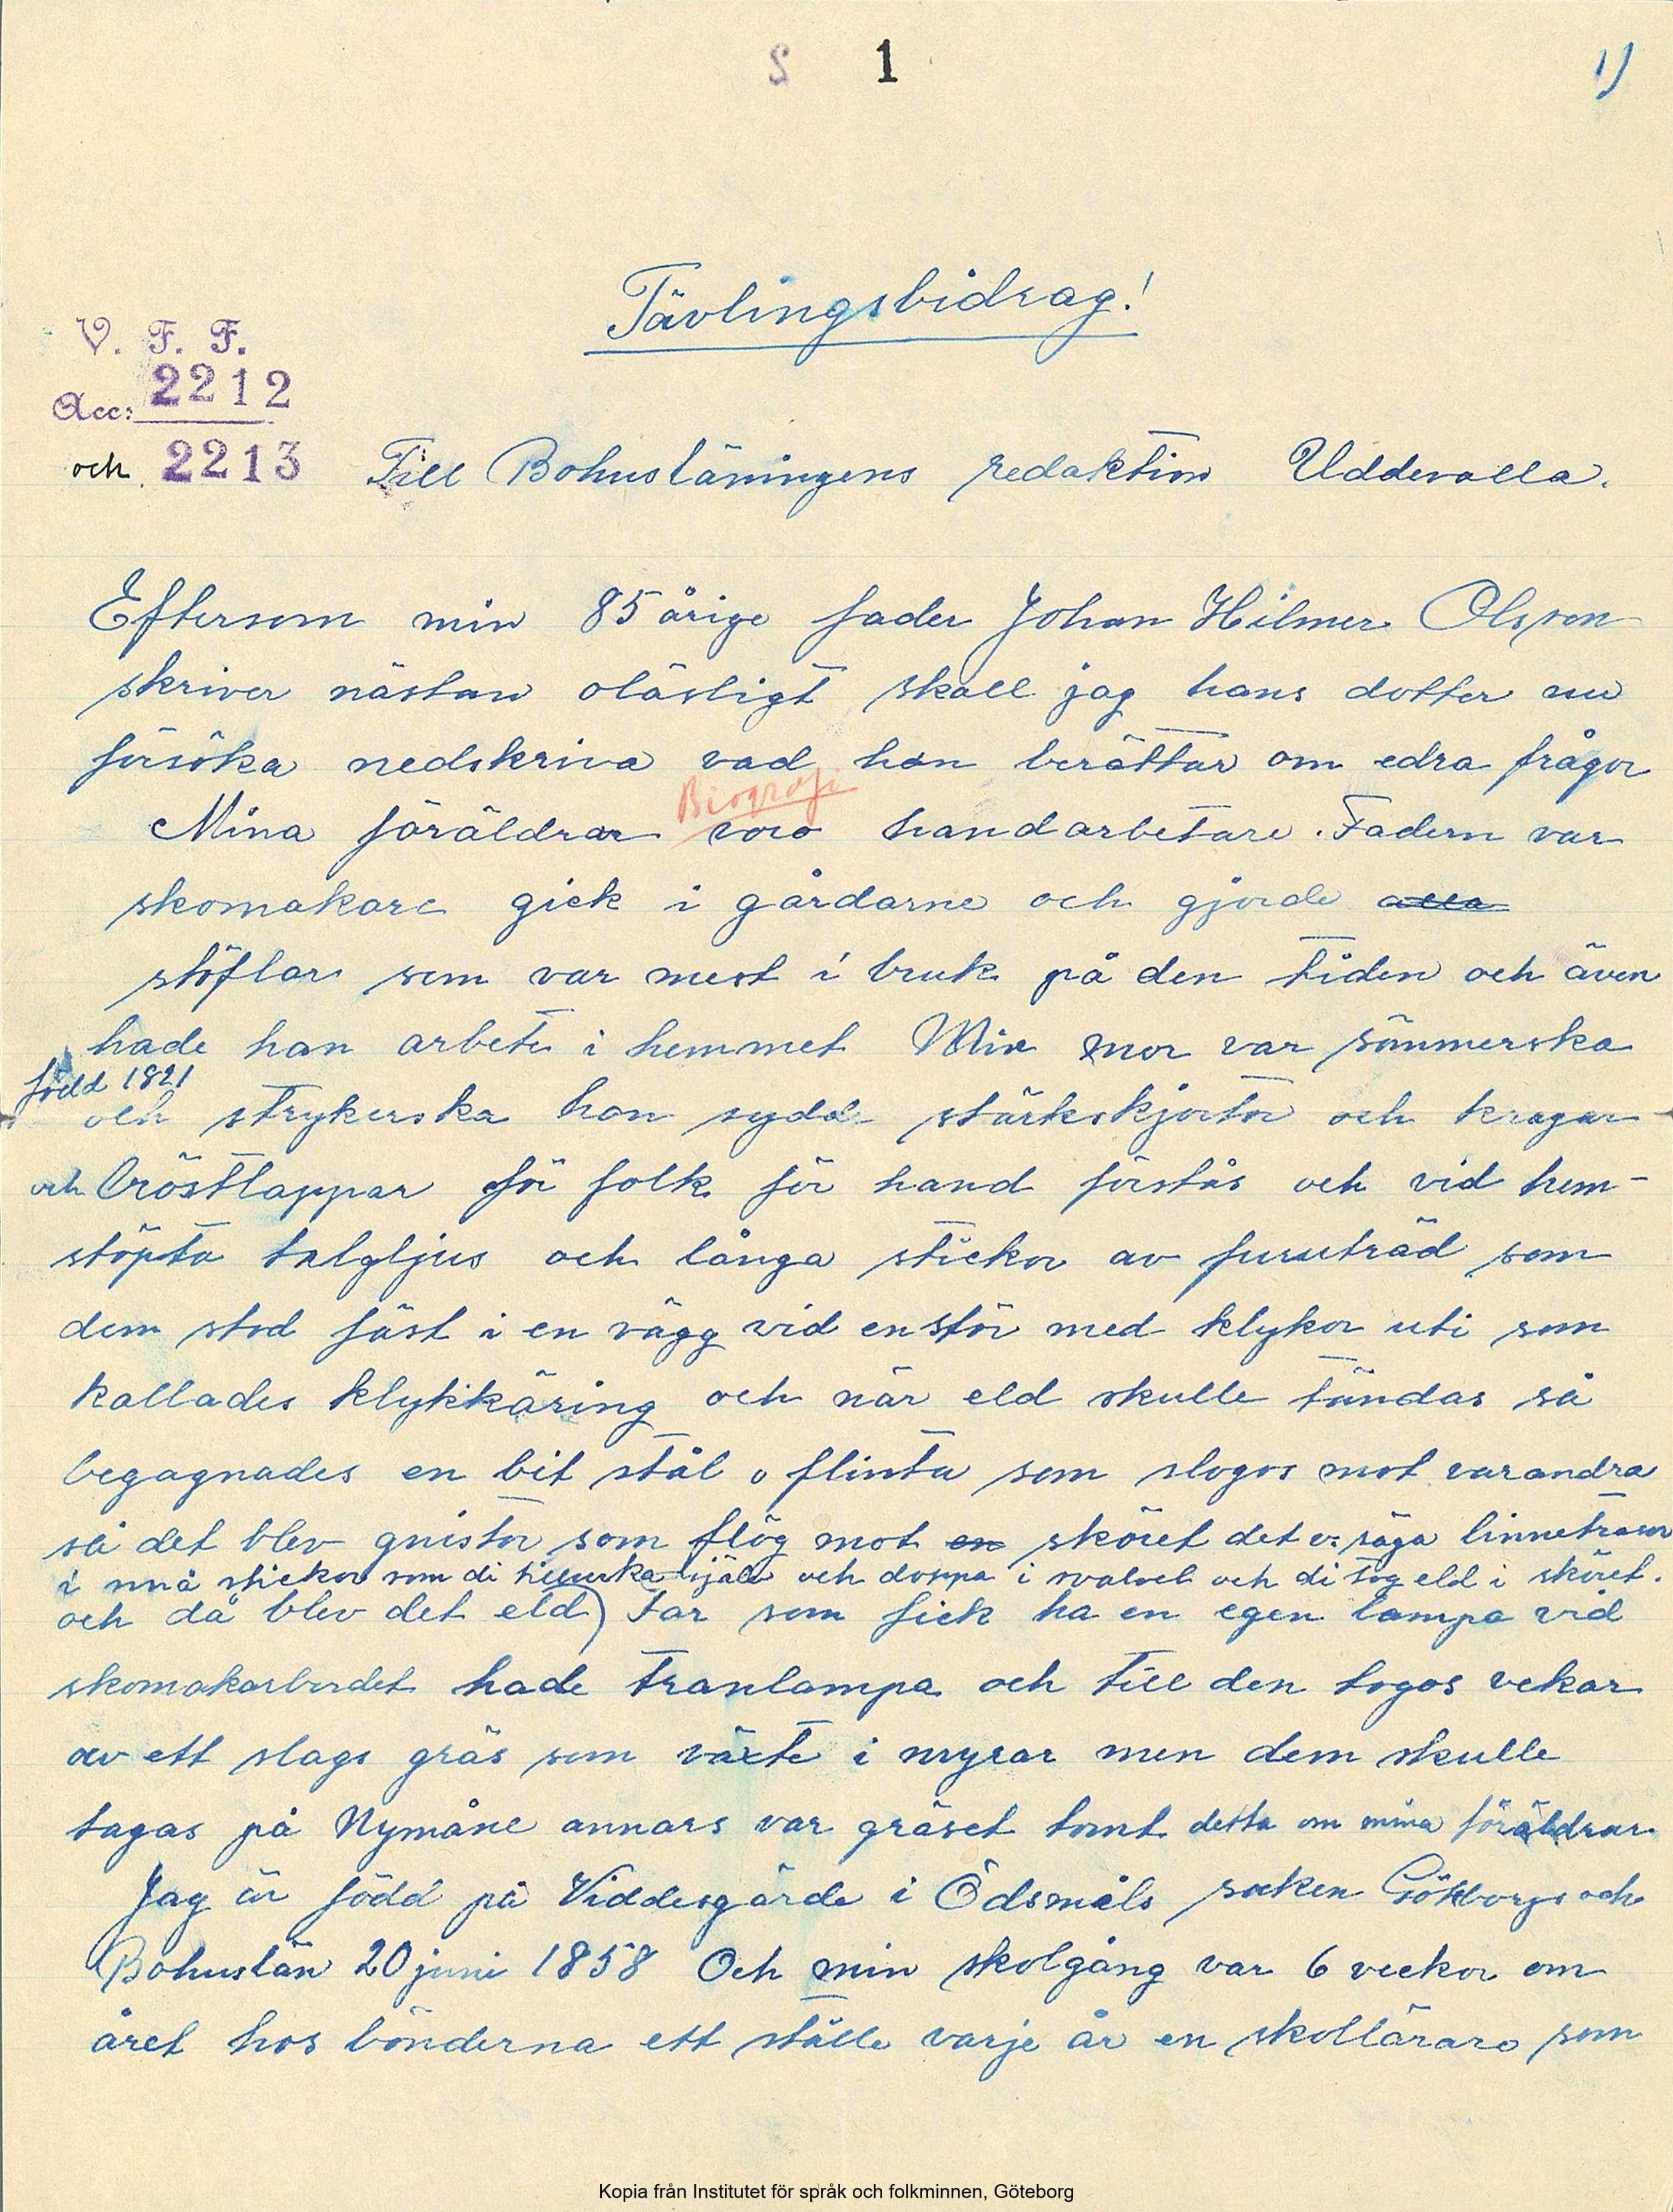 S 1 1)
Tävlingsbidrag!
V. F. F.
Acc: 2212
och 2213
Till Bohusläningens redaktion Uddevalla.
Eftersom min 85 årige fader Johan Hilmer Olsson
skriver nästan oläsligt skall jag hans dotter nu
försöka nedskriva vad han berättar om edra frågor
Biografi
Mina föräldrar voro handarbetare. Fadern var
skomakare gick i gårdarne och gjorde alla
stöflar som var mest i bruk på den tiden och även
hade han arbete i hemmet Min mor var sömmerska
född 1821
och strykerska hon sydde stärkskjortor och kragar
och bröstlappar för folk för hand förstås och vid hem-
stöpta talgljus och långa stickor av furuträd som
dem stod fäst i en vägg vid en stör med klykor uti som
kallades klykkäring och när eld skulle tändas så
begagnades en bit stål o flinta som slogos mot varandra
så det blev gnistor som flög mot en sköret det v. säga linnetrasor
i små stickor som di tillverka själv och doppa i svavel och di tog eld i sköret.
och då blev det eld) Far som fick ha en egen lampa vid
skomakarbordet hade tranlampa och till den togos vekar
av ett slags gräs som växte i myrar men dem skulle
tagas på Nymåne annars var gräset tomt detta om mina föräldrar.
Jag är född på Viddesgärde i Ödsmåls socken Göteborgs och
Bohuslän 20 juni 1858 Och min skolgång var 6 veckor om
året hos bönderna ett ställe varje år en skollärare som
Kopia från Institutet för språk och folkminnen, Göteborg